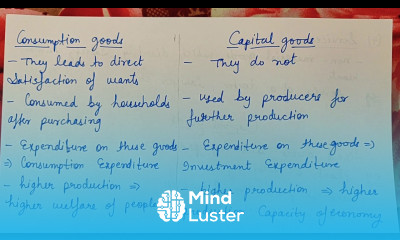 Consumption goods
- They leads to direct
satisfaction of wants
- Consumed by households
after purchasing
- Expenditure on these goods
=> Consumption Expenditure
- higher production =>
higher welfare of people
Capital goods
- They do not
- used by producers for
further production
- Expenditure on these goods =>
Investment Expenditure
- higher production => higher
Capacity of economy
Mind
Luster